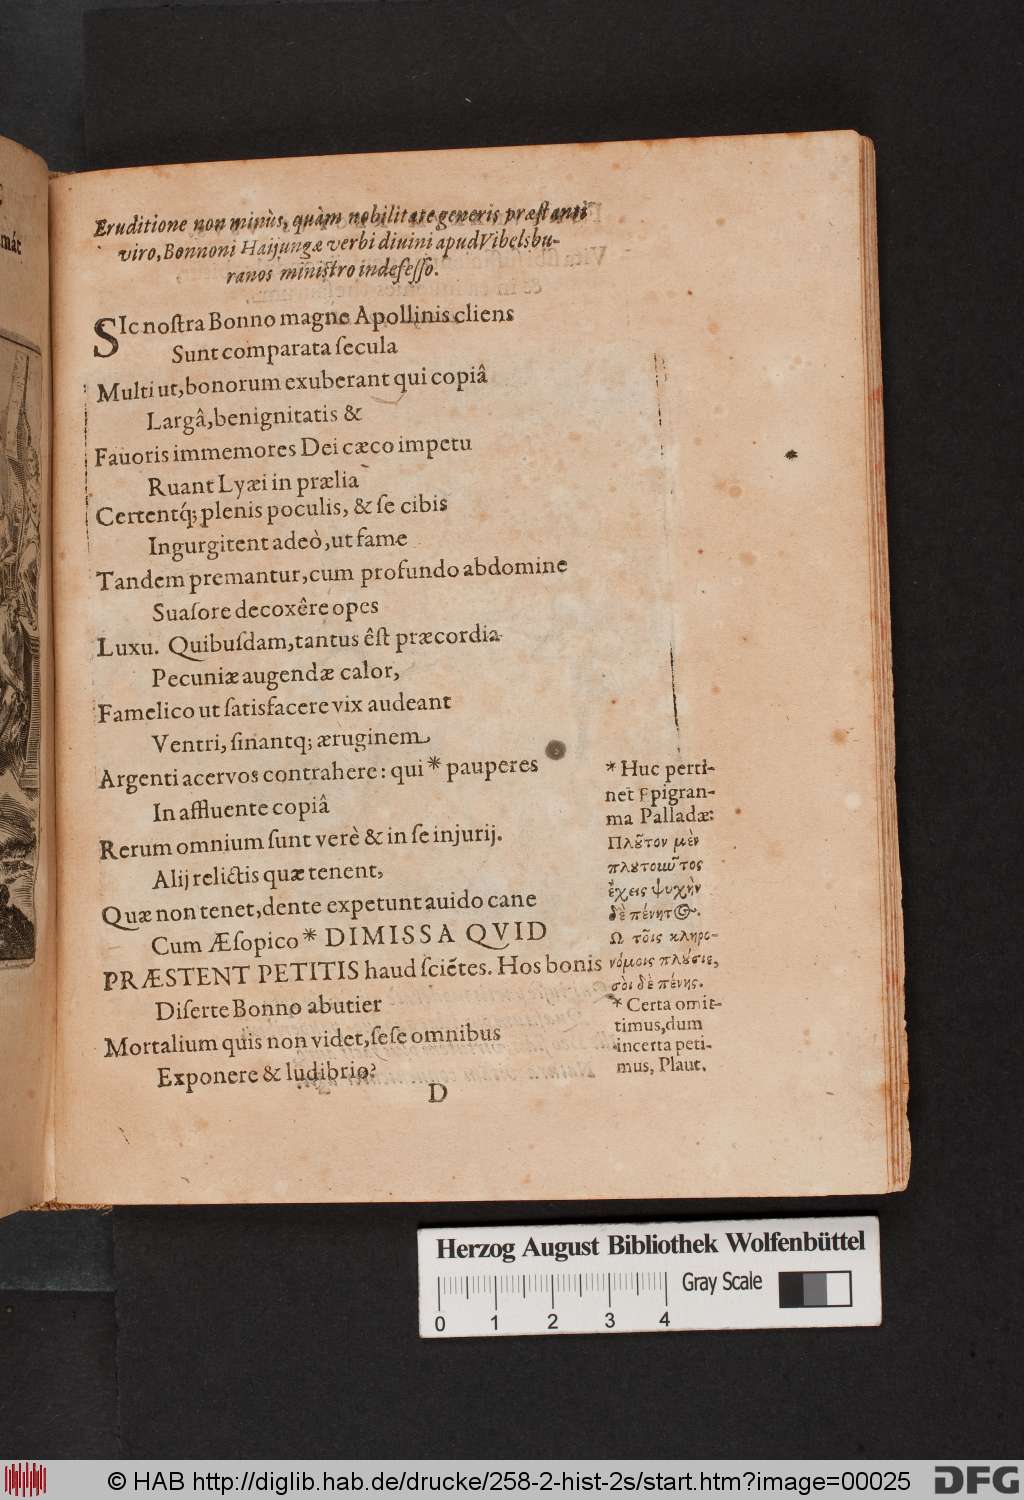 Eruditione non minùs, quàm nobilitate generis præstanti
viro, Bonnoni Haijungæ verbi diuini apud Vibelsbu-
ranos ministro indefesso.
SIc nostra Bonno magne Apollinis cliens
Sunt comparata secula
Multi ut, bonorum exuberant qui copiâ
Largâ, benignitatis &
Fauoris immemores Dei cæco impetu
Ruant Lyæi in prælia
Certentq́; plenis poculis, & se cibis
Ingurgitent adeò, ut fame
Tandem premantur, cum profundo abdomine
Suasore decoxêre opes
Luxu. Quibusdam, tantus êst præcordia
Pecuniæ augendæ calor,
Famelico ut satisfacere vix audeant
Ventri, sinantq; æruginem
Argenti acervos contrahere: qui * pauperes
In affluente copiâ
Rerum omnium sunt verè & in se injurij.
Alij relictis quæ tenent,
Quæ non tenet, dente expetunt auido cane
Cum Æsopico * DIMISSA QVID
PRÆSTENT PETITIS haud sciẽtes. Hos bonis
Diserte Bonno abutier
Mortalium quis non videt, sese omnibus
Exponere & ludibrio?
D
* Huc perti-
net Epigran-
ma Palladæ:
Πλȣ͂τον μὲν
πλȣτοιῦτος
ἔχεις ψυχὴν
δὲ πένητος.
Ω τοῖς κληρο-
νόμοις πλȣ́σιε,
σοὶ δὲ πένης.
* Certa omit-
timus, dum
incerta peti-
mus, Plaut.
már
Herzog August Bibliothek Wolfenbüttel
Gray Scale
0 1 2 3 4
© HAB http://diglib.hab.de/drucke/258-2-hist-2s/start.htm?image=00025
DFG